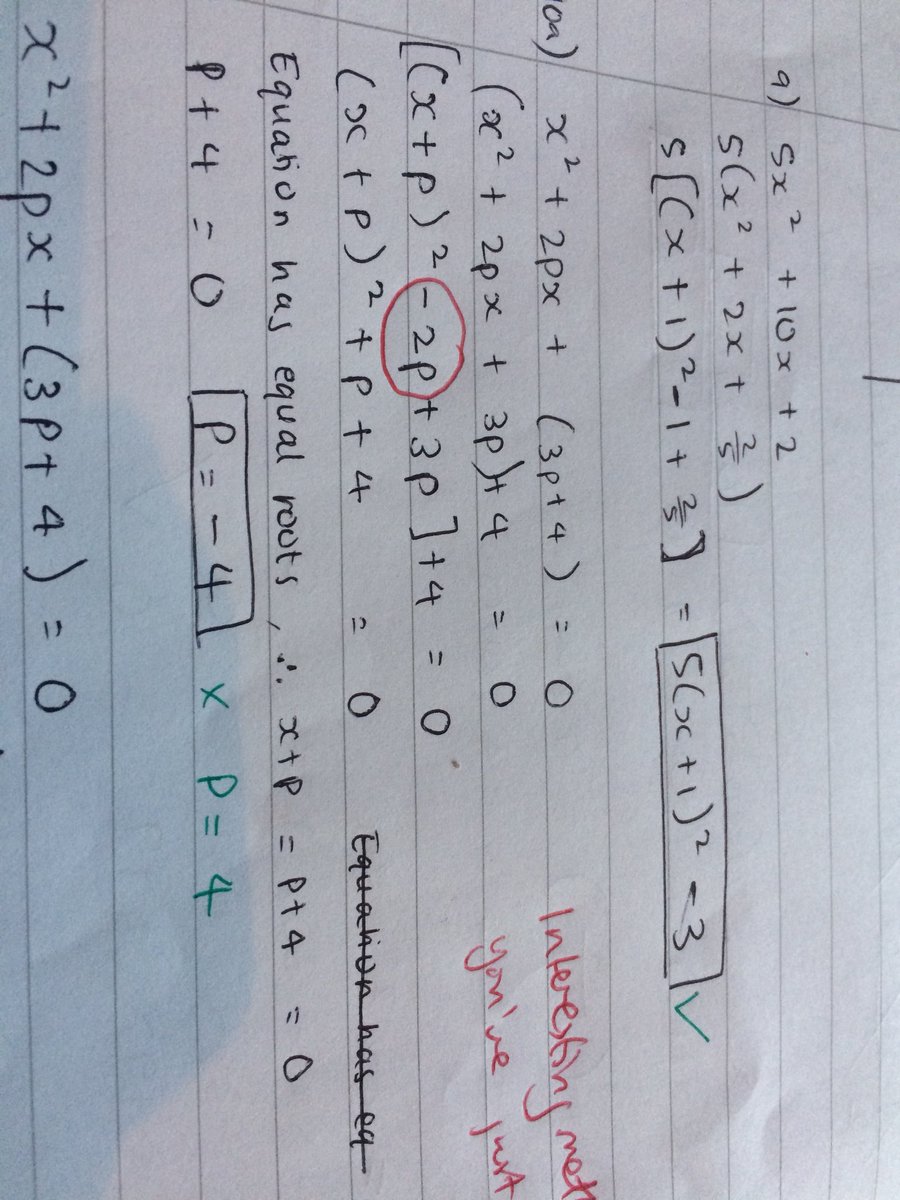 9) 5x² + 10x + 2
5(x² + 2x + 2/5)
5[(x + 1)² - 1 + 2/5] = 5(x + 1)² - 3 ✓
10a) x² + 2px + (3p+4) = 0 Interesting
(x² + 2px + 3p)+4 = 0 you've just
[(x+p)² - 2p + 3p]+4 = 0
(x + p)² + p + 4 = 0 Equation has eq
Equation has equal roots, ∴ x+p = p+4 = 0
p + 4 = 0 p = -4 x p = 4
x² + 2px + (3p+4) = 0